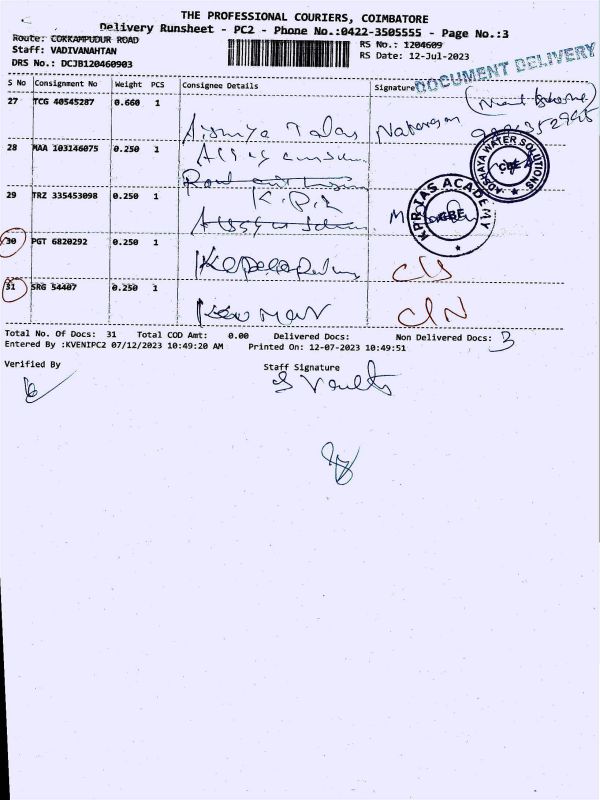 THE PROFESSIONAL COURIERS, COIMBATORE
Delivery Runsheet - PC2 - Phone No.:0422-3505555 - Page No.:3
Route: COKKAMPUDUR ROAD
RS No.: 1204609
Staff: VADIVANAHTAN
RS Date: 12-Jul-2023
DRS No.: DCJB120460903
DOCUMENT DELIVERY
S No Consignment No Weight PCS Consignee Details Signature
27 TCG 40545287 0.660 1
28 MAA 103146075 0.250 1
AKSHAYA WATER SOLUTIONS CBE
29 TRZ 335453098 0.250 1 K.P.R
KPR IAS ACADEMY CBE
30 PGT 6820292 0.250 1
31 SRG 54407 0.250 1
Total No. Of Docs: 31 Total COD Amt: 0.00 Delivered Docs: Non Delivered Docs: 3
Entered By :KVENIPC2 07/12/2023 10:49:20 AM Printed On: 12-07-2023 10:49:51
Verified By Staff Signature